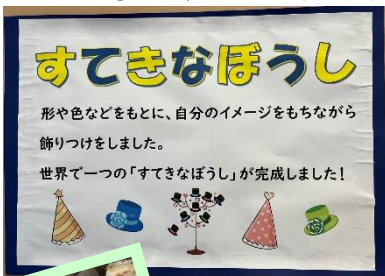 すてきなぼうし
形や色などをもとに、自分のイメージをもちながら
飾りつけをしました。
世界で一つの「すてきなぼうし」が完成しました！